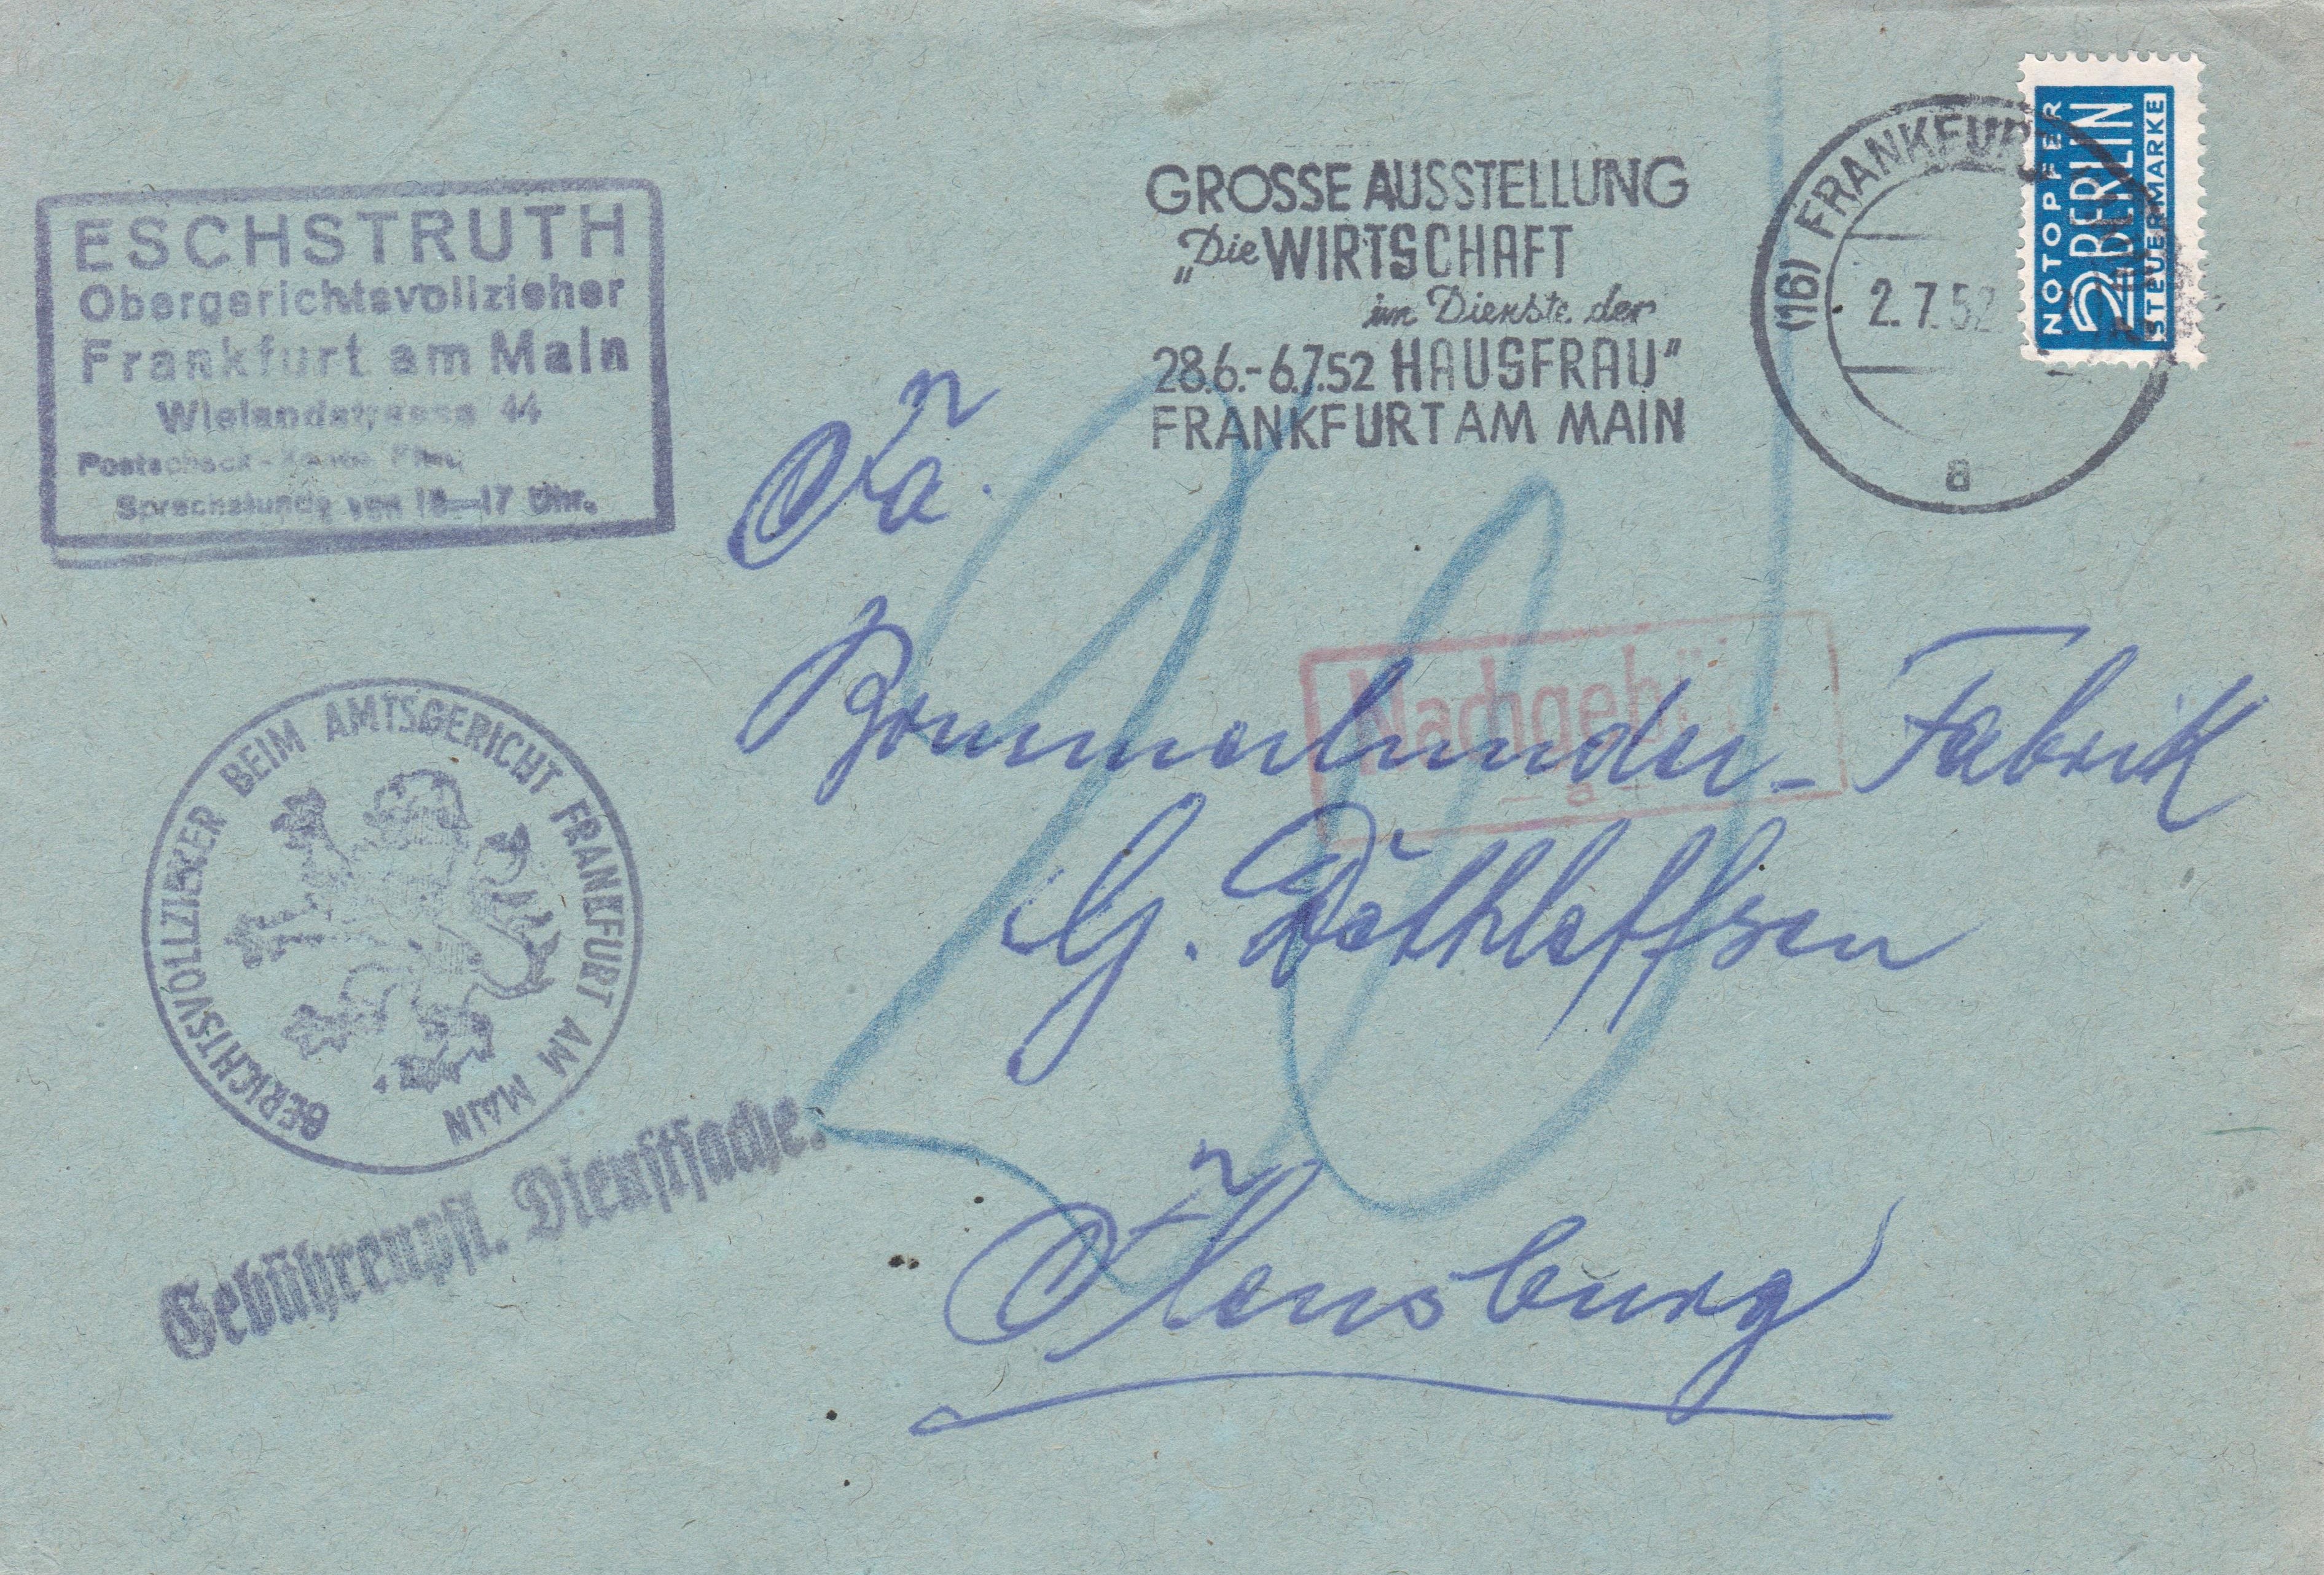 ESCHSTRUTH
Obergerichtsvollzieher
Frankfurt am Main
Wielandstrasse 44
Postscheck-Konto Ffm.
Sprechstunde von 15—17 Uhr.
GERICHTSVOLLZIEHER BEIM AMTSGERICHT FRANKFURT AM MAIN
Gebührenpfl. Dienstsache.
GROSSE AUSSTELLUNG
„Die WIRTSCHAFT
im Dienste der
28.6.-6.7.52 HAUSFRAU"
FRANKFURT AM MAIN
(16) FRANKFURT
2.7.52
a
NOTOPFER
2 BERLIN
STEUERMARKE
Fa.
Bommerlunder-Fabrik
G. Dethleffsen
Flensburg
Nachgebühr
20